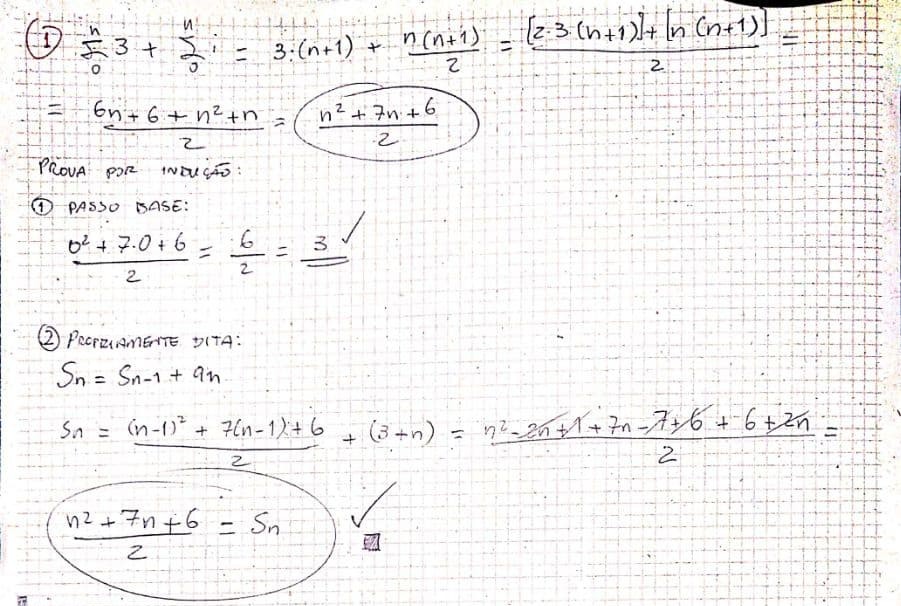 ① n Σ 0 3 + n Σ 0 i = 3·(n+1) + n(n+1)/2 = [2·3·(n+1)] + [n(n+1)]/2 =
= 6n + 6 + n² + n/2 = n² + 7n + 6/2
PROVA POR INDUÇÃO:
① PASSO BASE:
0² + 7·0 + 6/2 = 6/2 = 3 ✓
② PROPRIAMENTE DITA:
Sn = Sn-1 + an
Sn = (n-1)² + 7(n-1) + 6/2 + (3+n) = n² - 2n + 1 + 7n - 7 + 6 + 6 + 2n/2 =
n² + 7n + 6/2 = Sn ✓